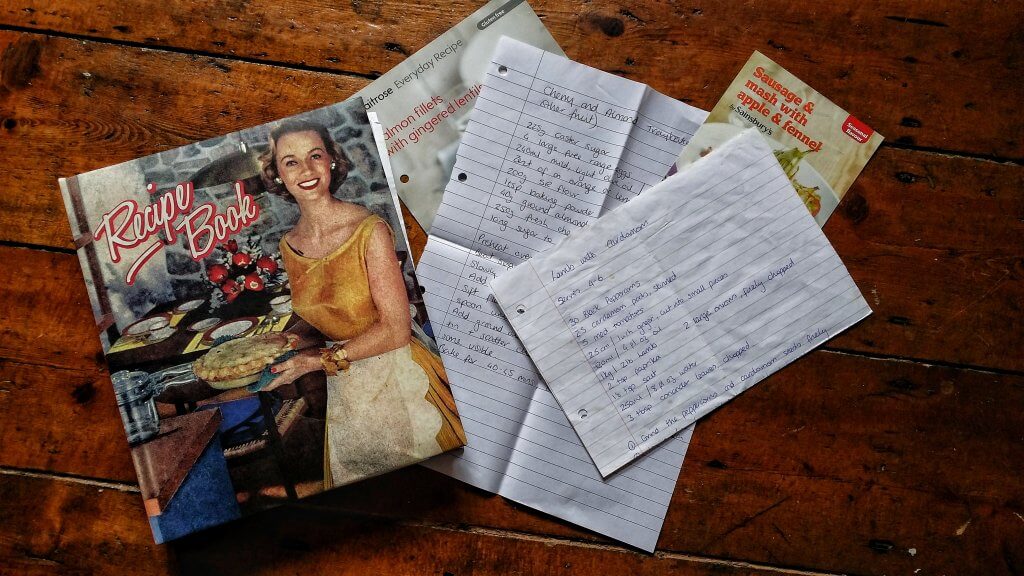 Recipe
Book
aitrose Everyday Recipe
Gluten free
almon fillets
with gingered lentils
Cherry and Almond Traybake
(other fruit)
225g caster sugar
4 large free range eggs
240ml mild, light
Zest of a orange
200g SR flour
1tsp baking powder
40g ground almonds
250g fresh che
10g sugar to
Preheat ove
Slowly
Add
Sift
spoon
Add ground
tin & scatter
some visible
Bake for
40-45 mins
Sausage &
mash with
apple & fennel
by Sainsbury's
Seasonal
Lamb with Cardamom
Serves 4-6
30 Black Peppercorns
25 cardamom pods,
5 med tomatoes
2.5cm / 1 inch ginger, cut into small pieces
2 large onions, finely chopped
oil
1kg / 2lb Lamb
1 tsp paprika
1½ tsp salt
250ml / 8 fl oz water
3 tbsp coriander leaves chopped
① Grind the peppercorns and cardamom seeds finely